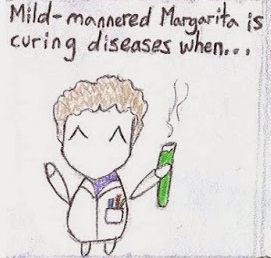 Mild-mannered Margarita is
curing diseases when...